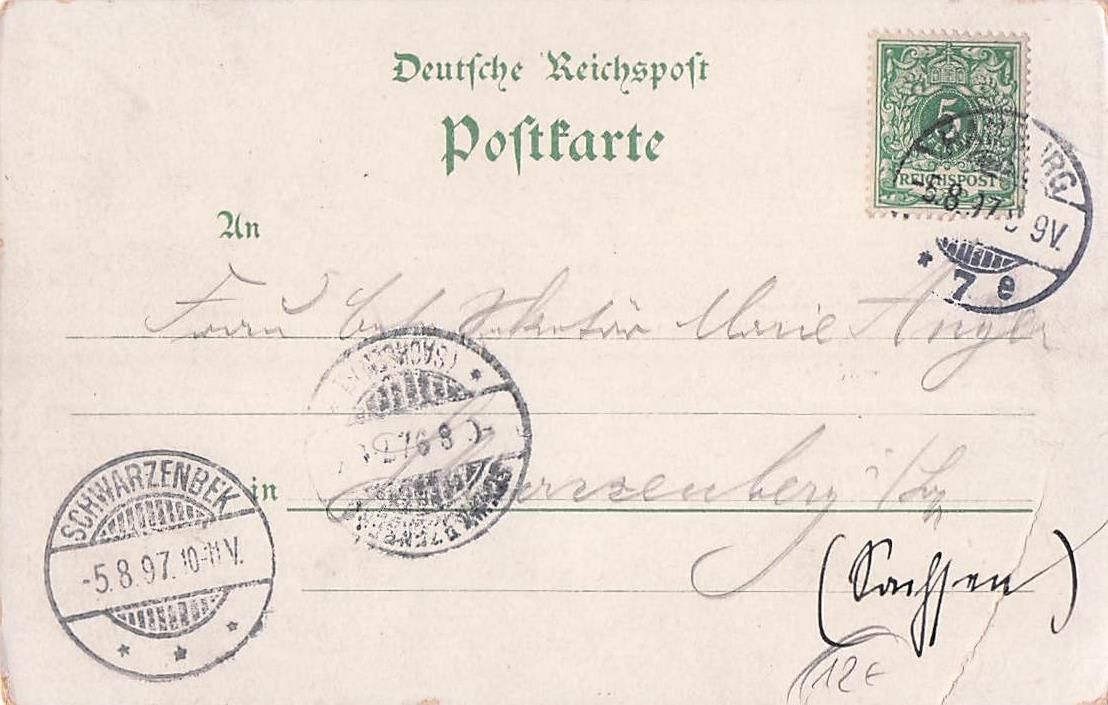 Deutsche Reichspost
Postkarte
5
REICHSPOST
BURG
-5.8.97. 8-9V.
* 7 e
An
Frau Sekretär Marie Anger
(SACHSEN) *
8 97
in
Schwarzenberg i/
SCHWARZENBEK
-5.8.97. 10-11V.
* * *
(Sachsen)
12€